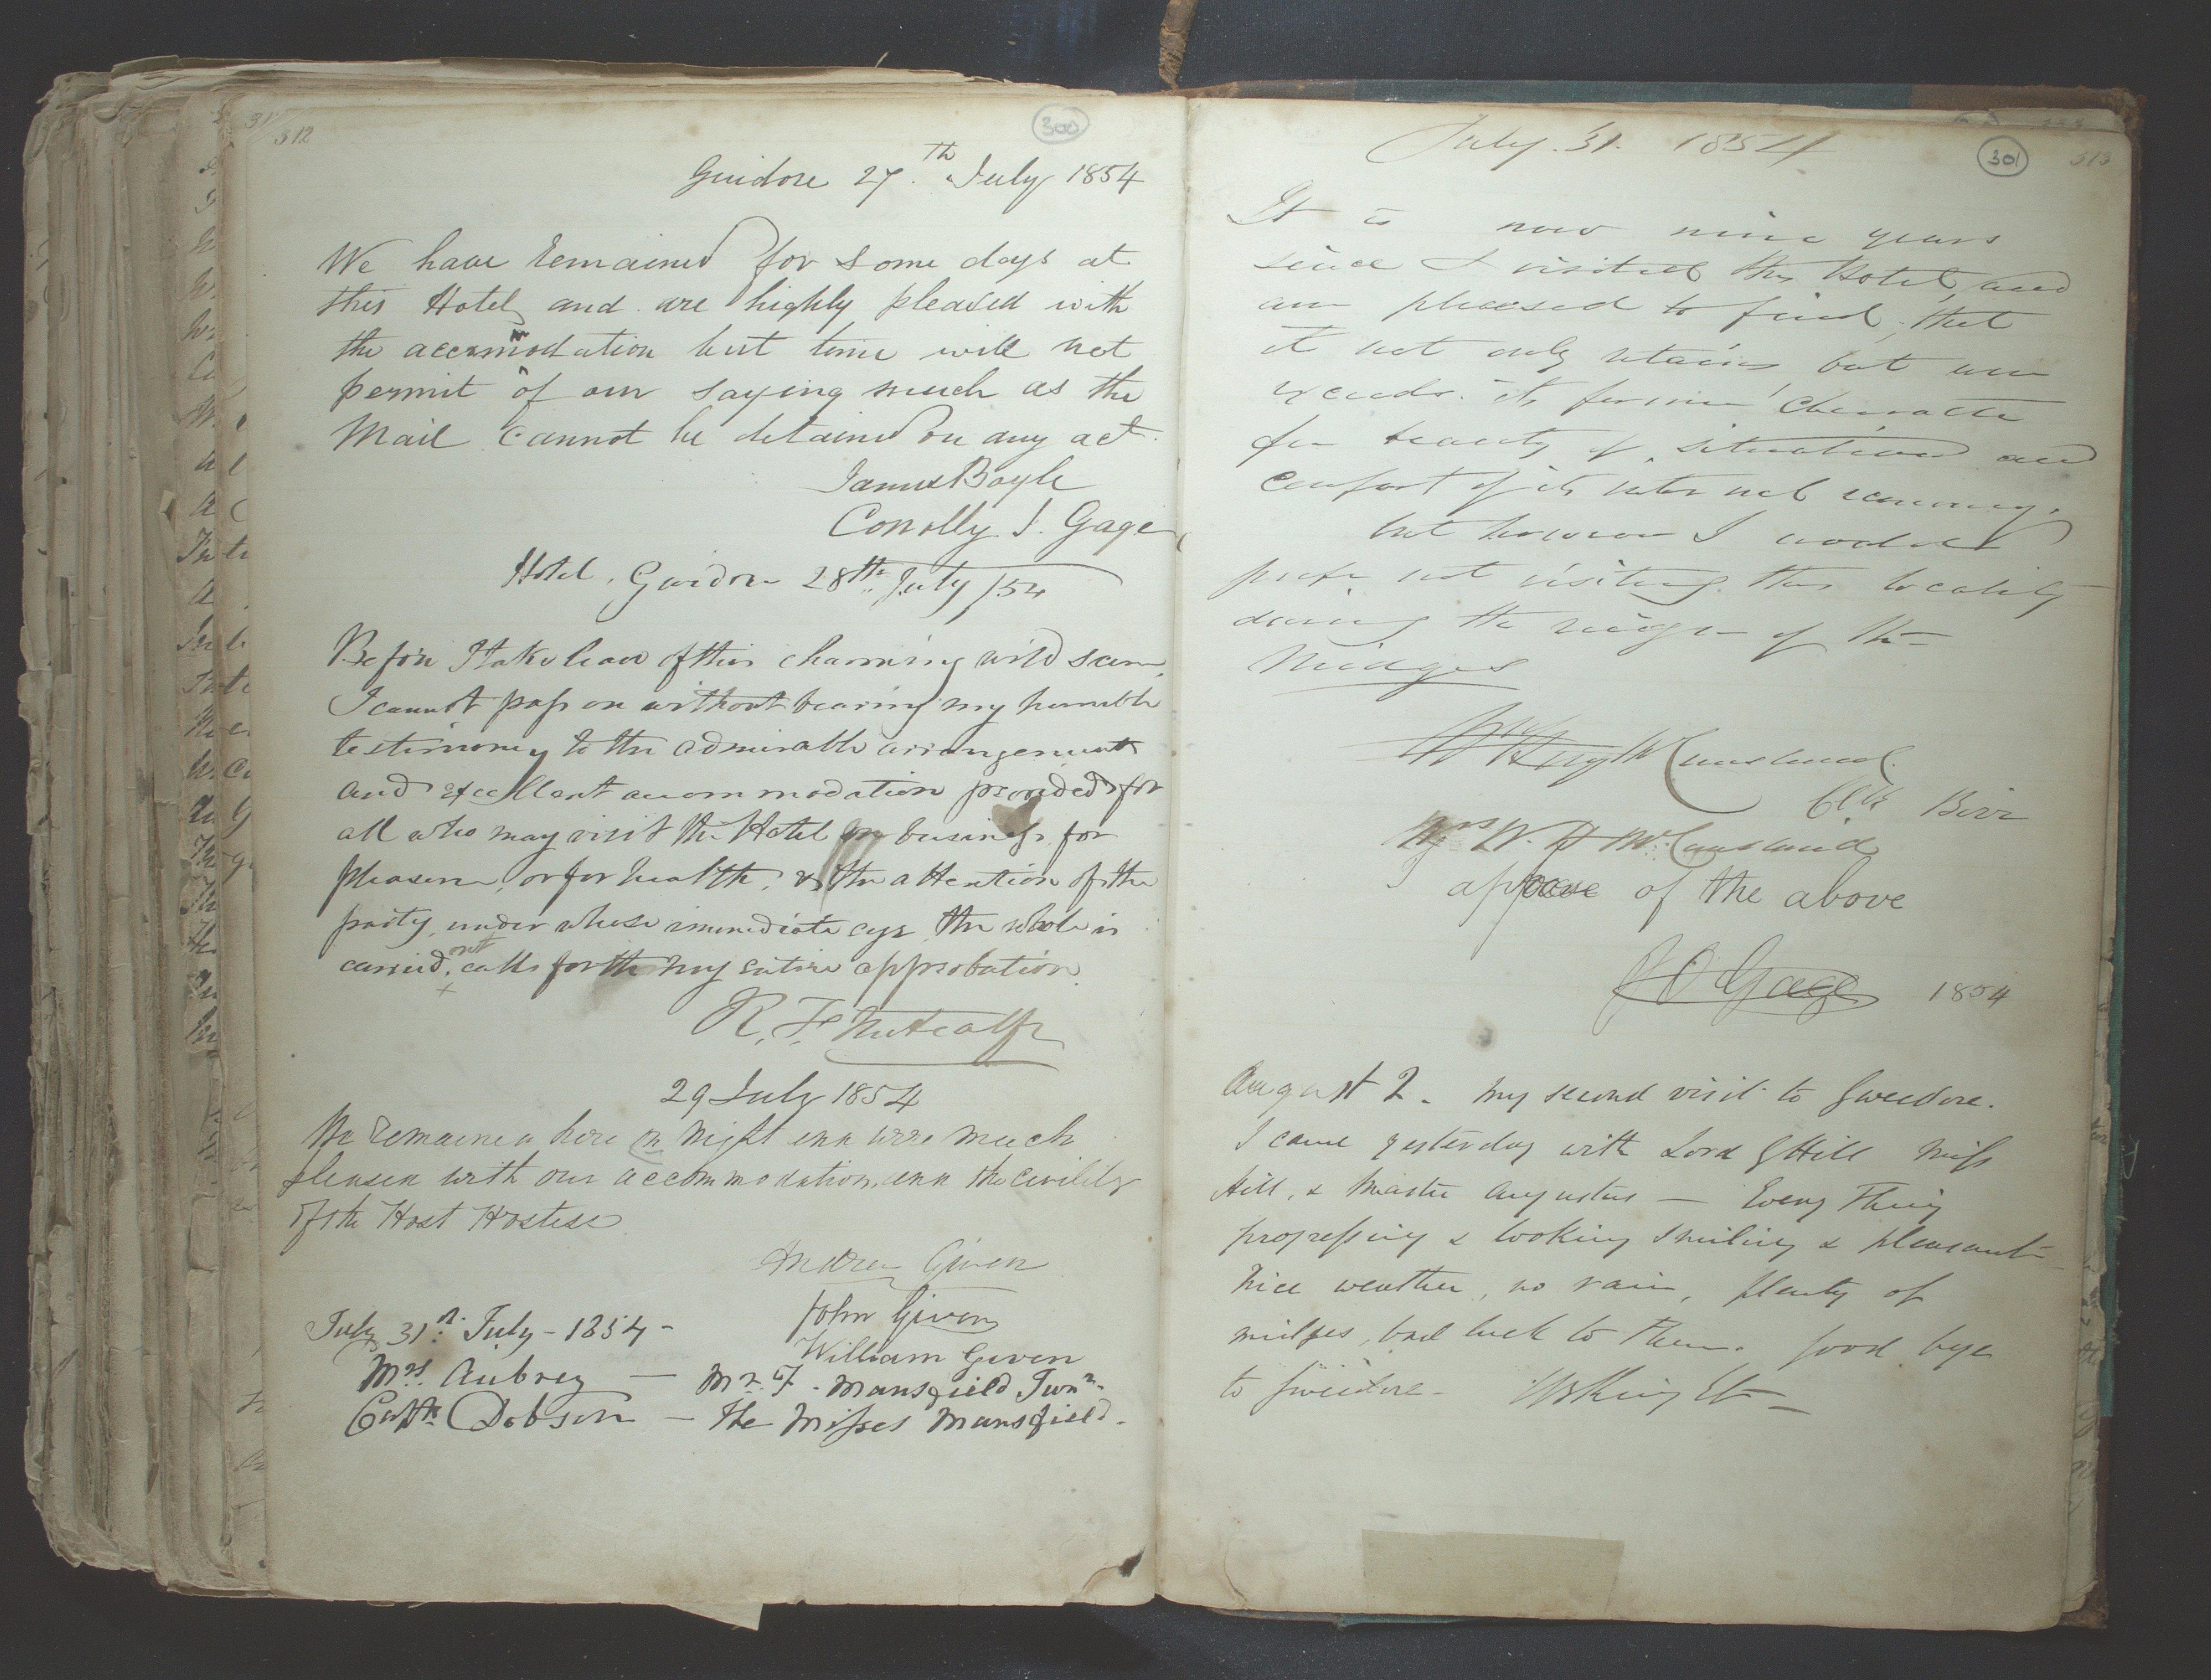 312
300
Guidore 27.th July 1854
We have remained for some days at
this Hotel and are highly pleased with
the accommodation but time will not
permit of our saying much as the
Mail cannot be detained on any act.
James Boyle
Conolly J. Gage
Hotel, Guidore 28th July /54
Before I take leave of this charming wild scene,
I cannot pass on without bearing my humble
testimony to the admirable arrangements
and excellent accommodation provided for
all who may visit the Hotel on business, for
pleasure, or for health, & the attention of the
party, under whose immediate eye, the whole is
carried out, calls forth my entire approbation.
R. F. Metcalfe
29 July 1854
We remained here on night and were much
pleased with our accommodation, and the civility
of the Host Hostess
Andrew Given
John Given
William Given
July 31st. July - 1854 -
Mrs. Aubrey — Mr. F. Mansfield Junr.
Captn. Dobson — The Misses Mansfield.
July. 31. 1854
301
313
It is now nine years
since I visited this Hotel, and
am pleased to find, that
it not only retains but even
exceeds its former character
for beauty of situation and
comfort of its internal economy,
but however I would
prefer not visiting this locality
during the reign of the
Midges
McCausland.
Clk Birr
Mrs W. H McCausland
approve of the above
J O Gage 1854
August 2. My second visit to Gweedore.
I came yesterday with Lord G Hill Miss
Hill, & Master Augustus — Every Thing
progressing & looking smiling & pleasant
Nice weather, no rain, plenty of
midges, bad luck to Them. Good bye
to Gweedore.